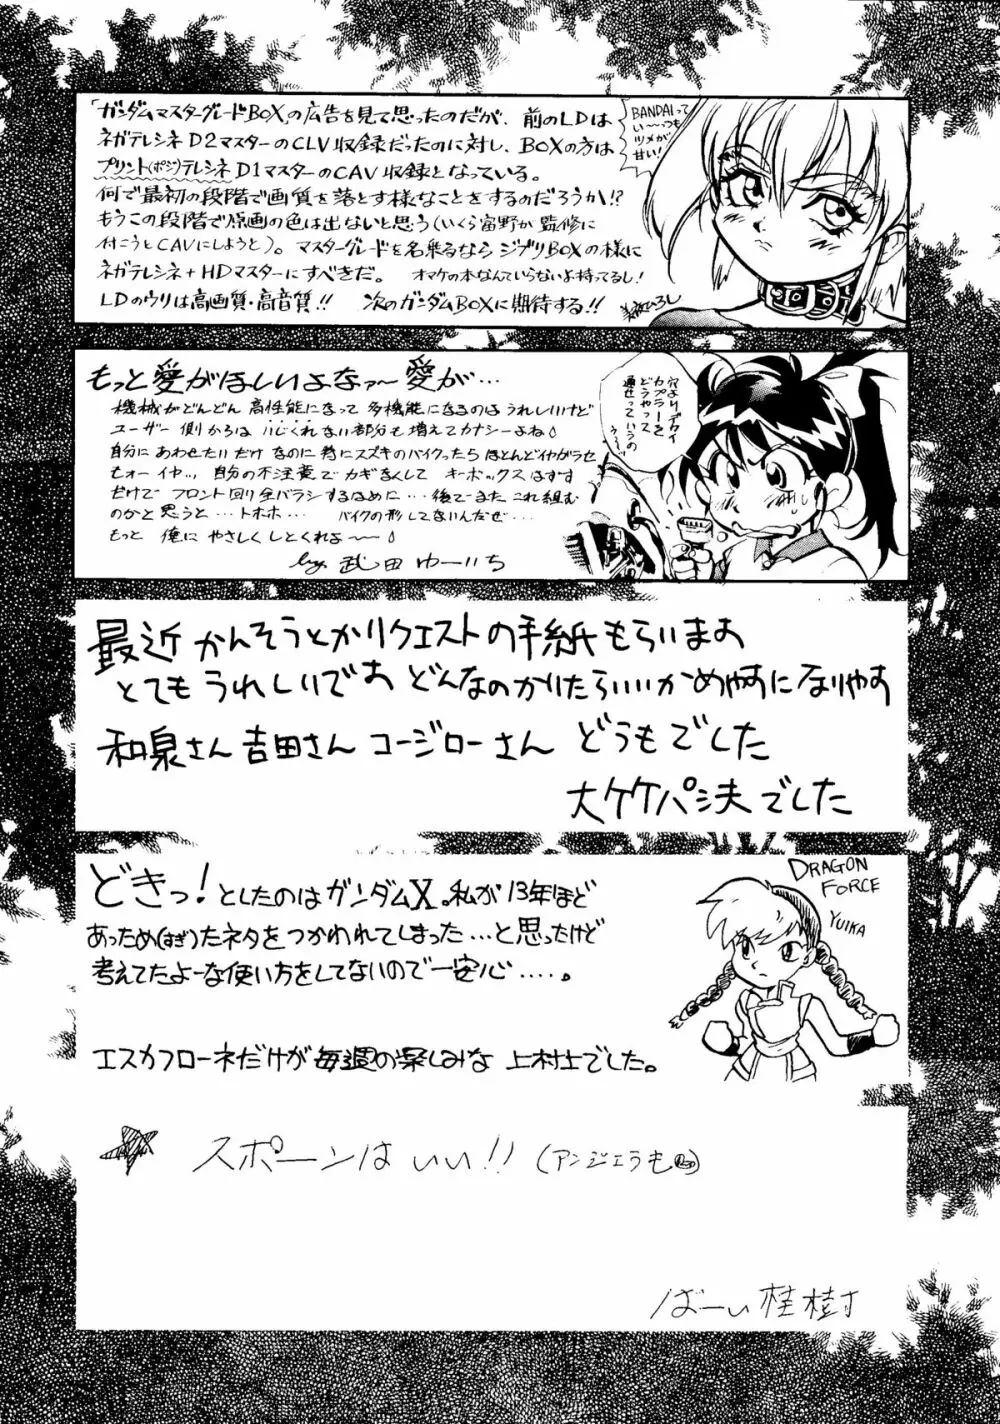 「ガンダムマスターグレードBOX」の広告を見て思ったのだが、前のLDは
ネガテレシネD2マスターのCLV収録だったのに対し、BOXの方は
プリント(ポジ)テレシネD1マスターのCAV収録となっている。
何で最初の段階で画質を落とす様なことをするのだろうか!?
もうこの段階で原画の色は出ないと思う(いくら富野が監修に
付こうとCAVにしようと)。マスターグレードを名乗るならジブリBOXの様に
ネガテレシネ+HDマスターにすべきだ。 オマケの本なんていらないよ持ってるし!
LDのウリは高画質・高音質!! 次のガンダムBOXに期待する!!
BANDAIって
い〜〜っつも
ツメが
甘い!
もっと愛がほしいよなァ〜愛が…
機械がどんどん高性能になって多機能になるのはうれしいけど
ユーザー側からは心じくれない部分も増えてカナシーよね
自分にあわせたいだけなのに特にスズキのバイクったらほとんどイヤがラセ
もォーイヤッ、自分の不注意でカギなくしてキーボックスはずす
だけでフロント回り全バラシするはめに…後でまたこれ組む
のかと思うと…トホホ… バイクの形してないんだぜ…
もっと俺にやさしくしとくれよ〜〜
by 武田ゆーいち
穴よりデカイ
カプラーを
どうやって
通せっていうの
最近かんそうとかリクエストの手紙もらいまお
とてもうれしいでお どんなのかいたらいいかめやすになりやす
和泉さん吉田さんコージローさん どうもでした
大ケケパシ夫でした
どきっ!としたのはガンダムX。私が13年ほど
あっため(すぎ)たネタをつかわれてしまった…と思ったけど
考えてたよーな使い方をしてないので一安心……。
エスカフローネだけが毎週の楽しみな 上村士でした。
DRAGON
FORCE
YUIKA
☆ スポーンはいい!! (アンジェラも)
ばーい桂樹